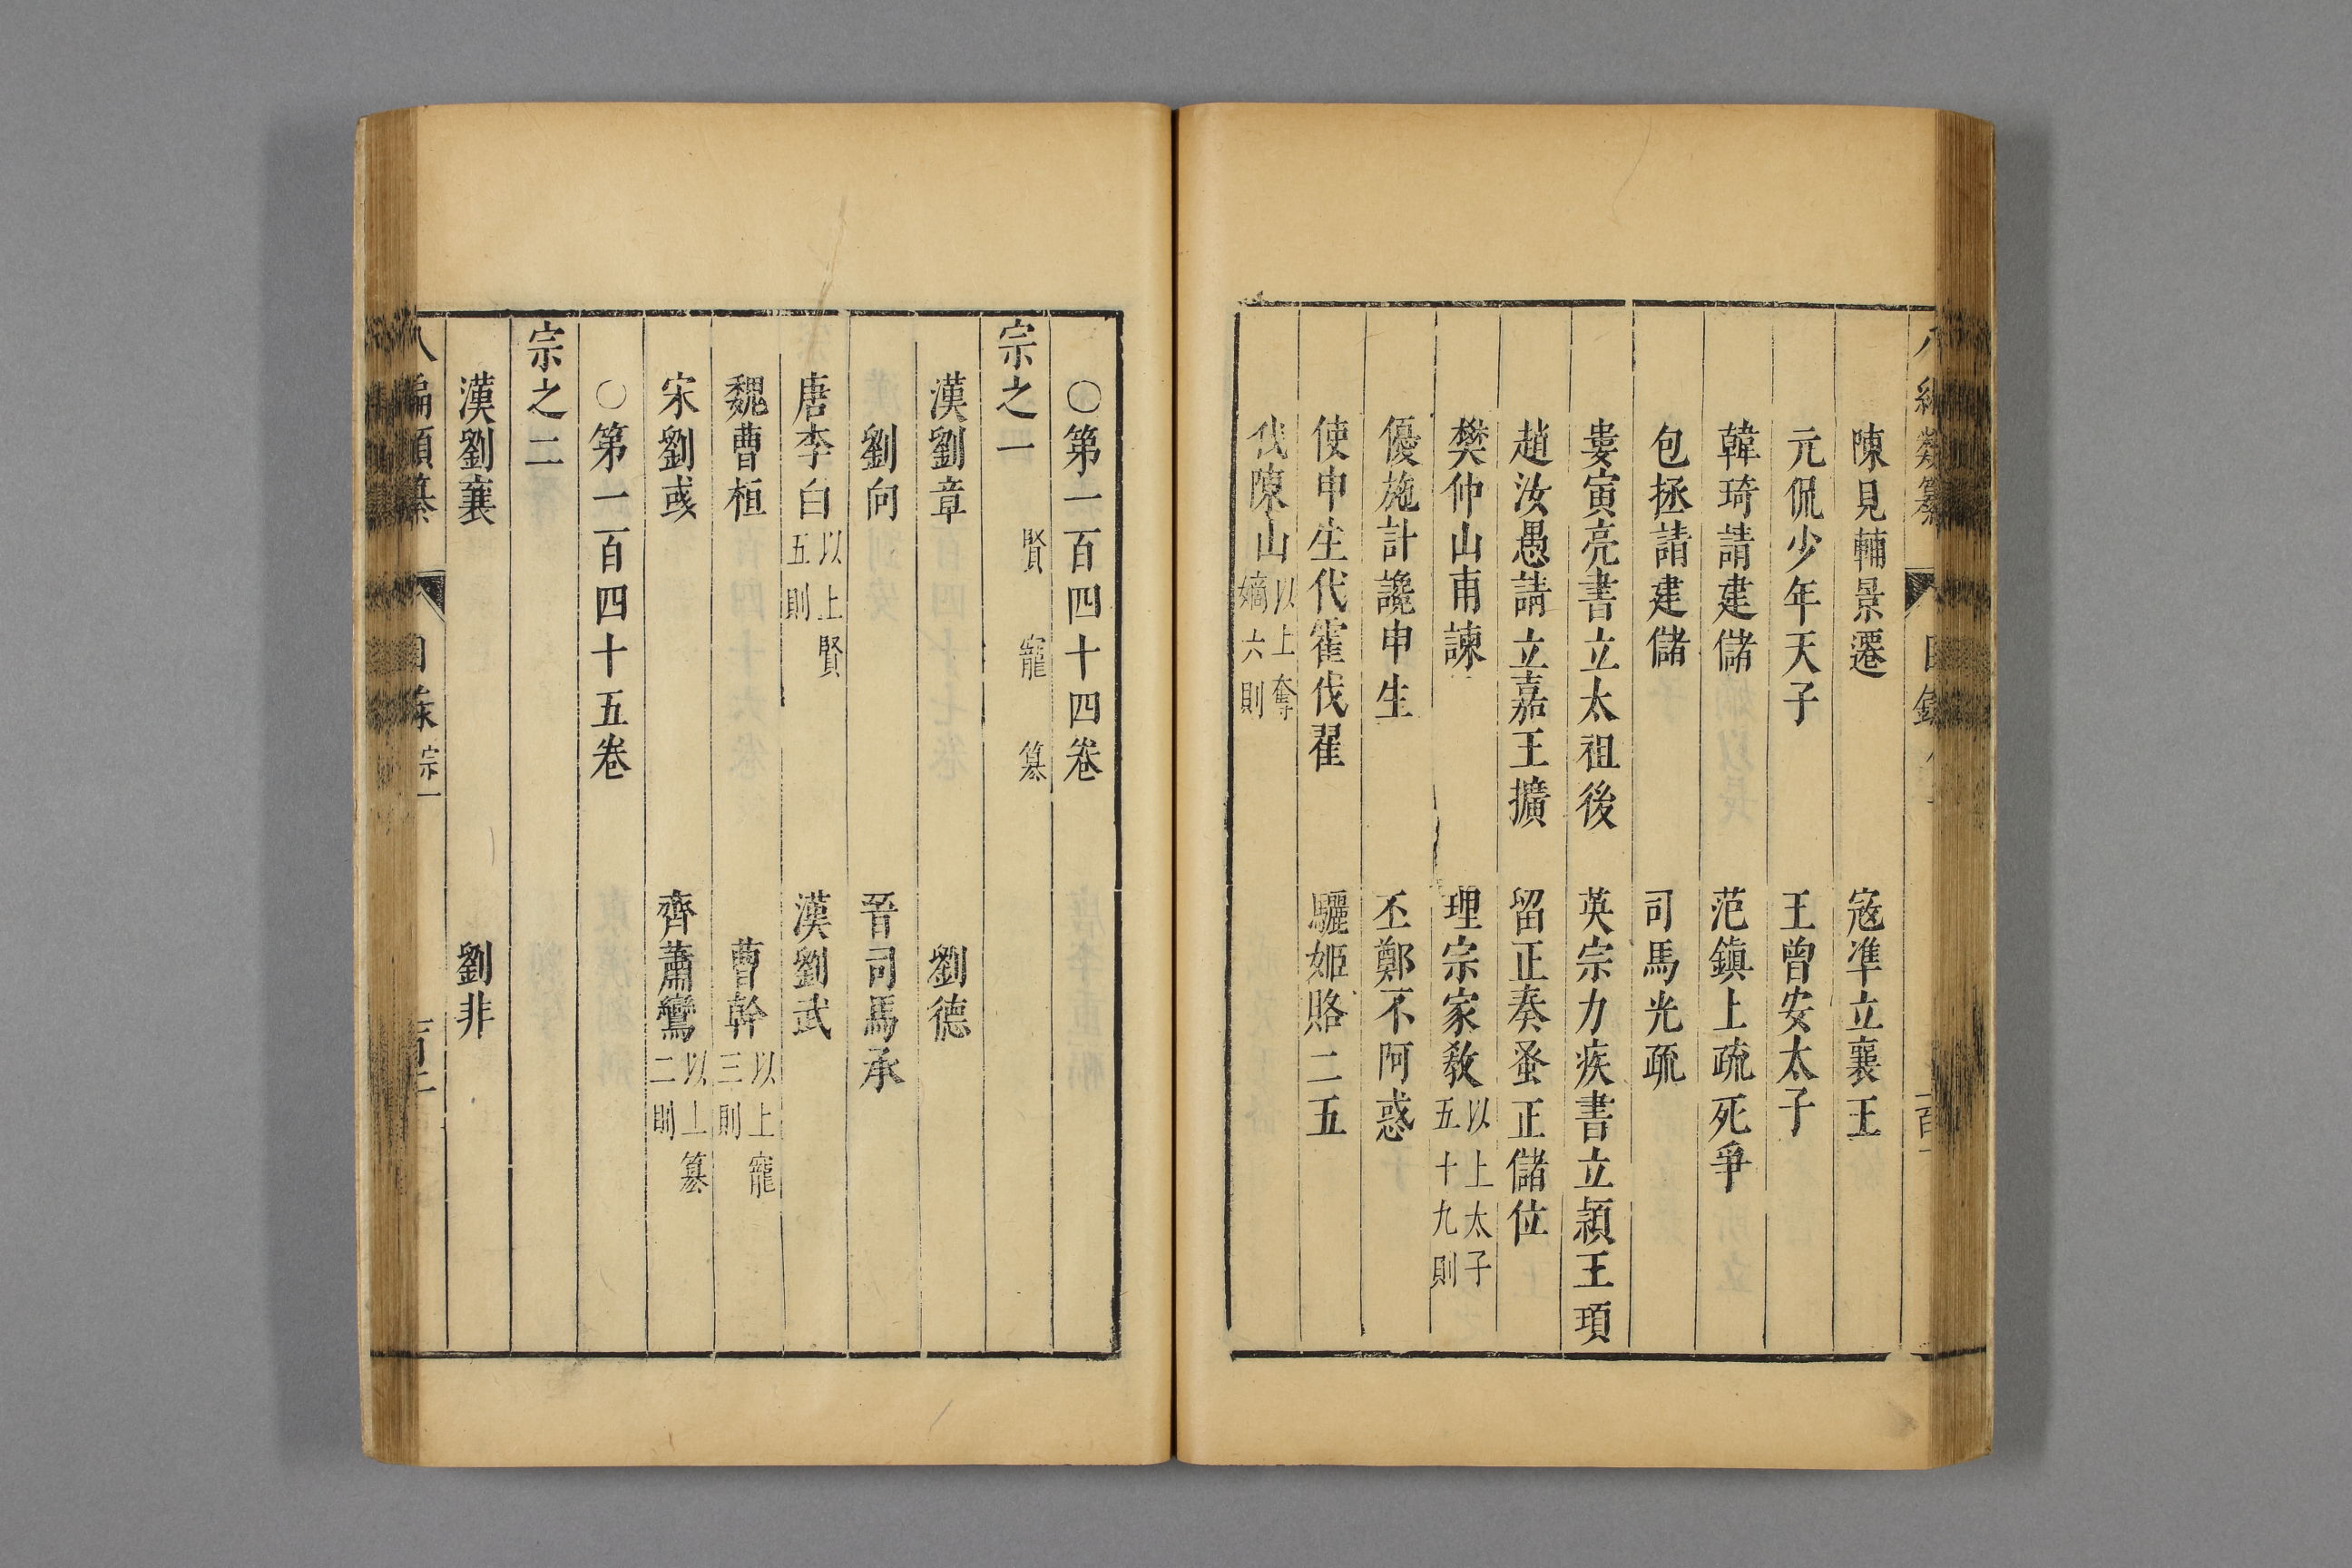 陳見輔景遷　寇準立襄王
元侃少年天子　王曾安太子
韓琦請建儲　范鎮上疏死爭
包拯請建儲　司馬光疏
婁寅亮書立太祖後　英宗力疾書立頴王頊
趙汝愚請立嘉王擴　留正奏蚤正儲位
樊仲山甫諫　理宗家教以上太子五十九則
優施計讒申生　丕鄭不阿惑
使申生代霍伐翟　驪姬賂二五
伐陳山以上奪嫡六則
○第一百四十四卷
宗之一　賢　寵　簒
漢劉章　劉德
劉向　晉司馬承
唐李白以上賢五則　漢劉武
魏曹桓　曹幹以上寵三則
宋劉彧　齊蕭鸞以上簒二則
○第一百四十五卷
宗之二
漢劉襄　劉非